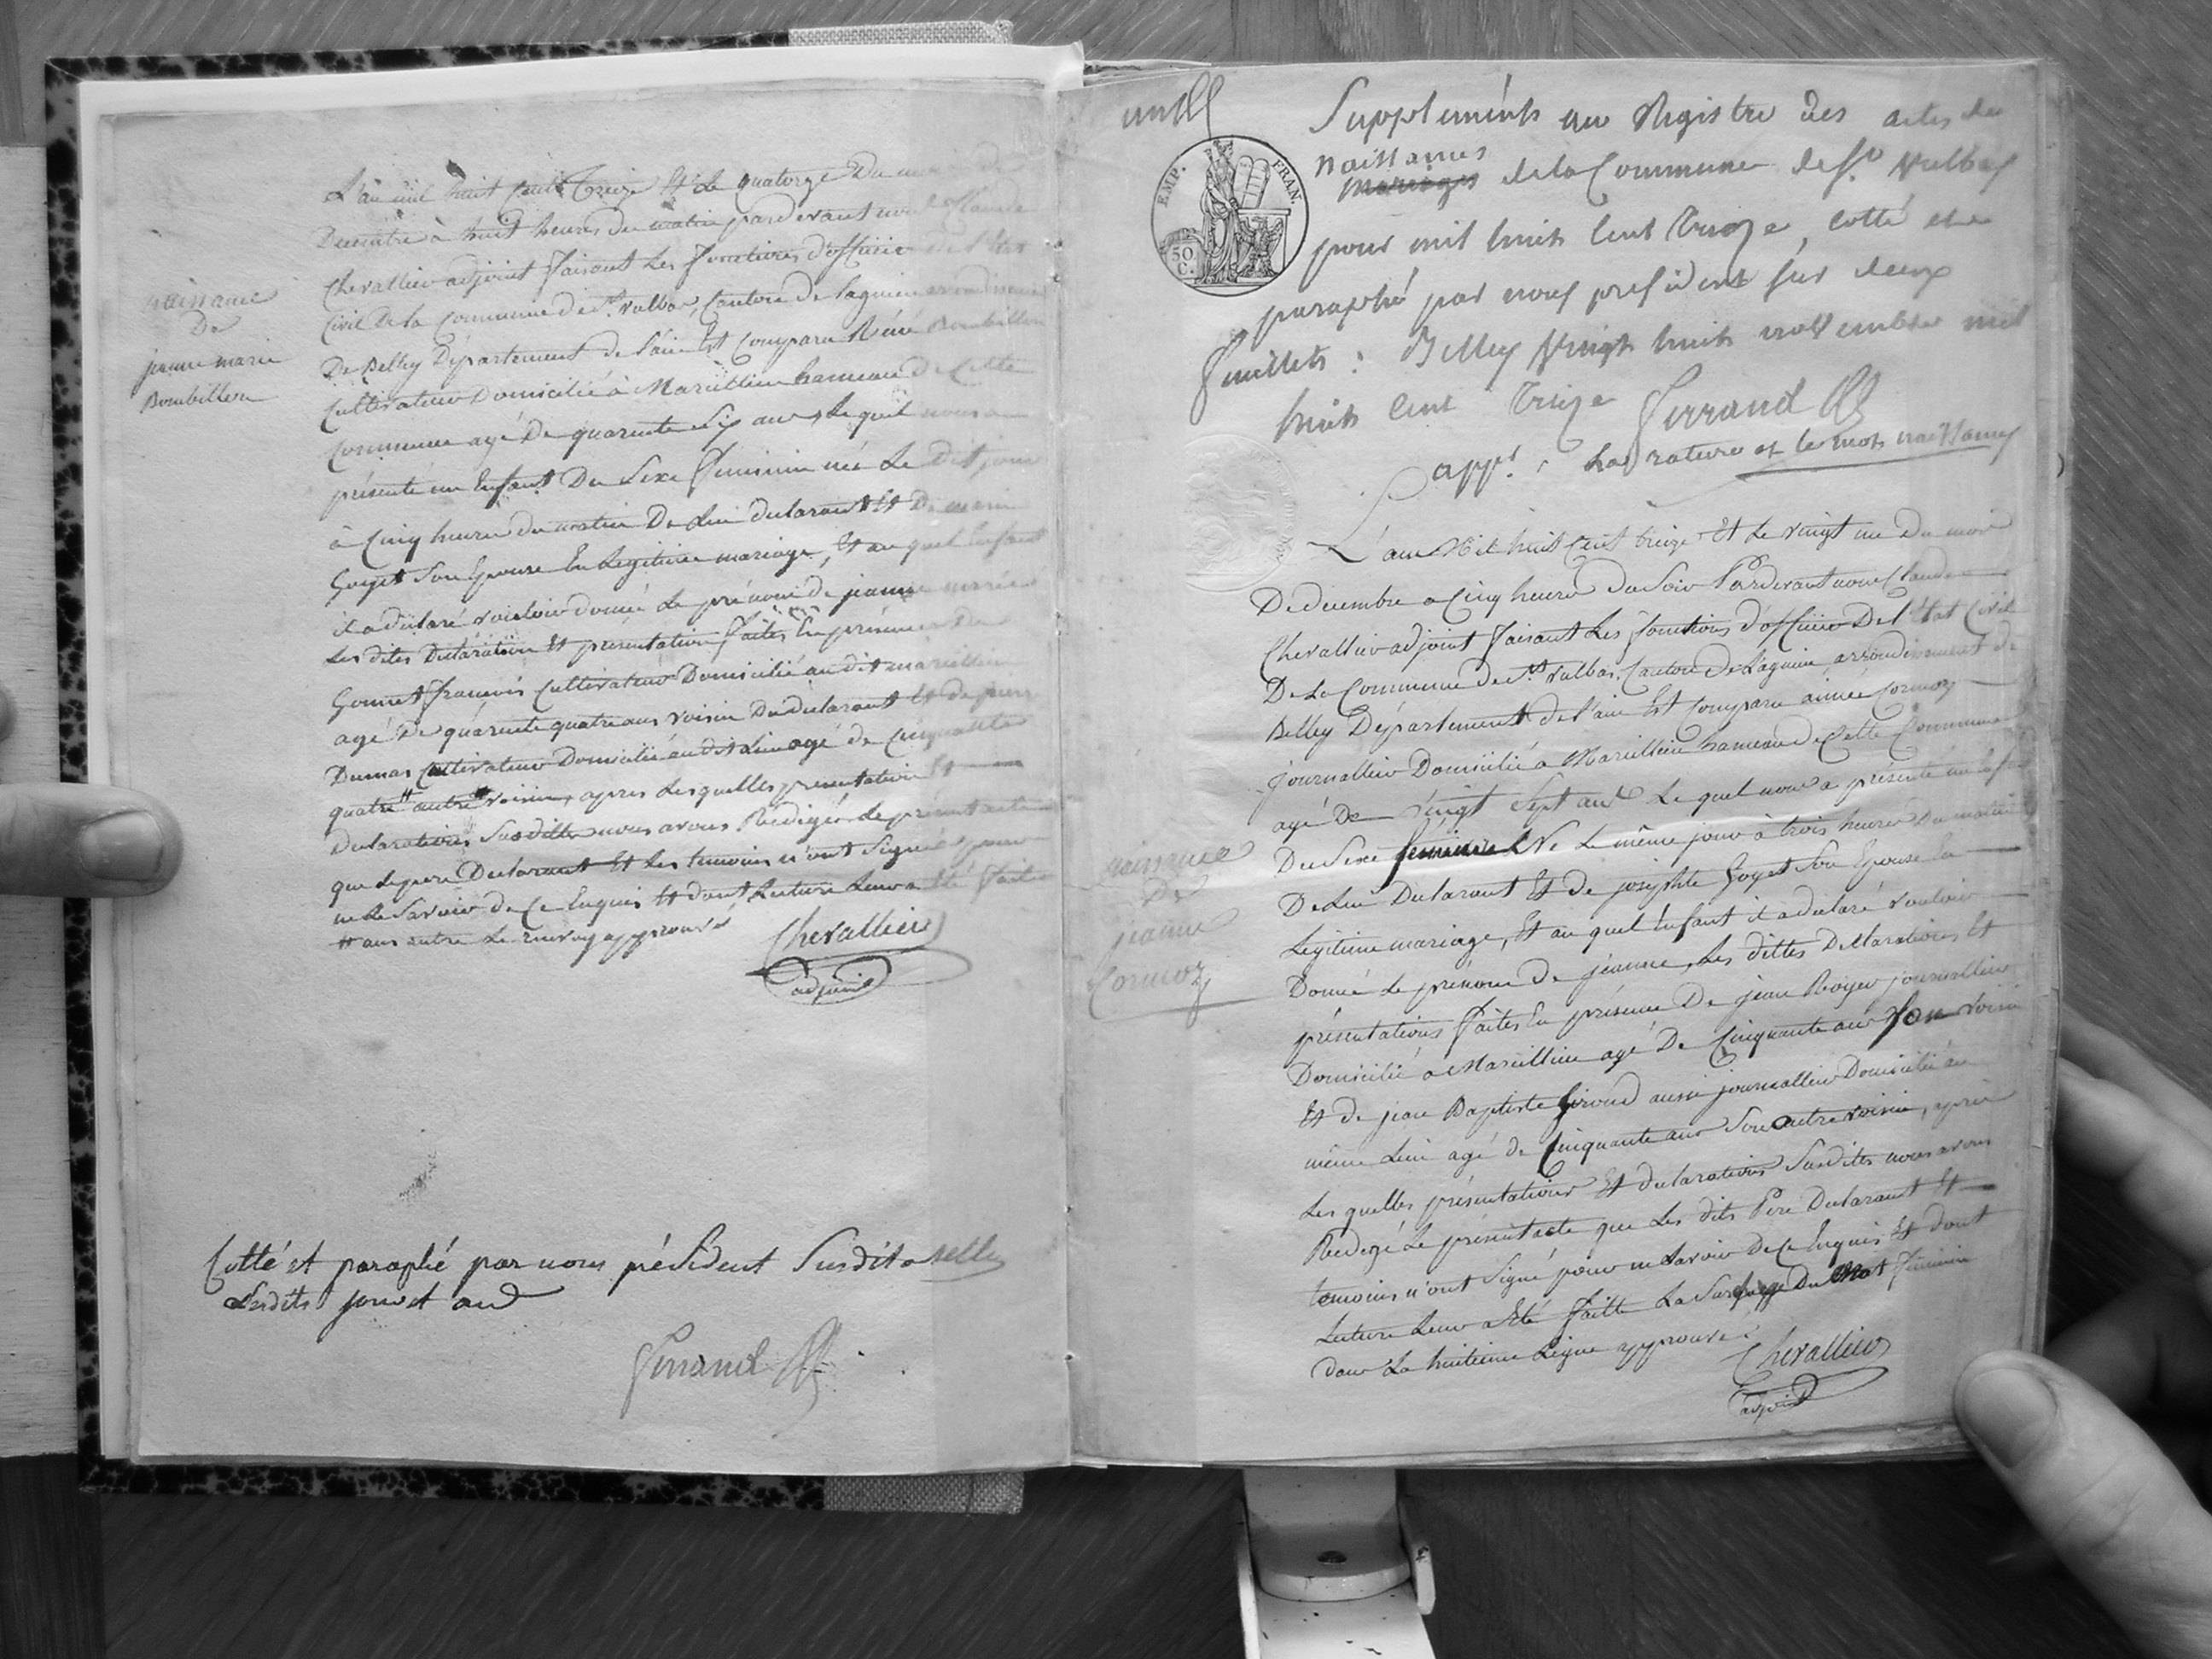 L'an mil huit Cent Treize Et Le quatorze Du mois de
Decembre à huit heures du matin pardevant nous Claude
Chevallier adjoint faisant Les fonctions d'officier de l'état
Civil De la Commune de St. vulbas, Canton de Lagnieu arrondissement
De Belley Département de l'ain Est Comparu Réné Bombillon
Cultivateur Domicilié à Marcillieu hameau de Cette
Commune agé De quarente Six ans, Le quel nous a
présenté un Enfant Du Sexe feminin né Le dit jour
à Cinq heures du matin De Lui declarant Et De marie
Goyet Son Epouse En Legitime mariage, Et au quel Enfant
il a déclaré vouloir donné Le prénom de jeanne marie
Les dites Declaration Et presentation faites En présence De
Gonnet françois Cultivateur Domicilié au dit marcillieu
agé De quarente quatre ans voisin Du declarant Et de pierre
Dumas Cultivateur Domicilié au dit Lieu agé de Cinquante
quatre # autre voisin, apres Lesquelles presentation Et
Declarations Susdittes nous avons Rédigés Le présent acte
que Le pere Declarant Et Les temoins n'ont Signé pour
ne Le Savoir de Ce Enquis Et dont Lecture Leur a Eté faite
# ans autre Le renvoy approuvé
Chevallier
adjoint
naissance
De
jeanne marie
Bombillon
Cotté et paraphé par nous président Susdit a Belley
Lesdits jour et an
Ferrand
Supplements au Registre des actes de
naissances
mariages de la Commune de St. Vulbas
pour mil huit Cent Treize, cotté et
paraphé par nous president sur deux
feuillets : Belley Vingt huit novembre mil
huit Cent Treize Ferrand
appé. La rature et le mot naissances
EMP. FRAN.
50 C.
L'an Mil huit Cent treize Et Le vingt un Du mois
De decembre a Cinq heures du Soir Pardevant nous Claude
Chevallier adjoint faisant Les fonctions d'officier De l'état Civil
De La Commune de St. vulbas, Canton De Lagnieu, arrondissement de
Belley Département de l'ain Est Comparu aimée Cormoz
journallier Domicilié à Marcillieu hameau de Cette Commune
agé De Vingt Sept ans Le quel nous a présenté un Enfant
Du Sexe feminin Né Le même jour à trois heures Du matin
De Lui Declarant Et de josephte Goyet Son Epouse En
Legitime mariage, Et au quel Enfant il a declaré vouloir
Donné Le prénom de jéanne, Les dittes Déclarations Et
présentations faites En présence De jean Royer journallier
Domicilié a Marcillieu agé De Cinquante ans Son voisin
Et de jean Baptiste Giroud aussi journallier Domicilié au
même Lieu agé de Cinquante ans Son autre voisin, après
Les quelles présentations Et declarations Susdites nous avons
Redigé Le présent acte que Les dits Pere Declarant Et
temoins n'ont Signé pour ne Savoir De Ce Enquis Et dont
Lecture Leur a Eté faitte La Surcharge Du Mot feminin
dans La huitieme Ligne approuvé :
Chevallier
adjoint
naissance
De
jeanne
Cormoz